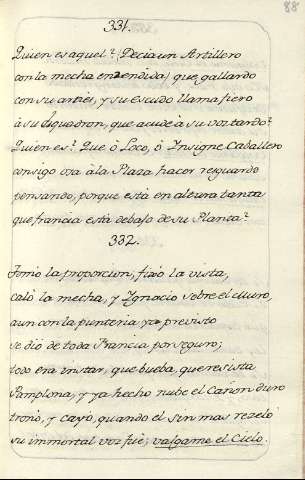 88
331.
Quien es aquel? (Decia un Artillero
con la mecha enzendida) que gallardo
con su arnes, y su Escudo llama fiero
à su Esquadron, que acude à su voz tardo?
Quien es? Que ô Loco, ô Insigne Caballero
consigo osa à la Plaza hacer resguardo
pensando, porque està en altura tanta
que francia està debajo de su Planta?
332.
Tomò la proporcion, fixò la vista,
calò la mecha, y Ignacio sobre el Muro,
aun con la punteria ya prevista
se diò de toda Francia por seguro;
todo era instar, que buelba, que resista
Pamplona, y ya hecho nube el Cañon duro
tronò, y cayò, quando el sin mas rezelo
su immortal voz fuè; valgame el Cielo.